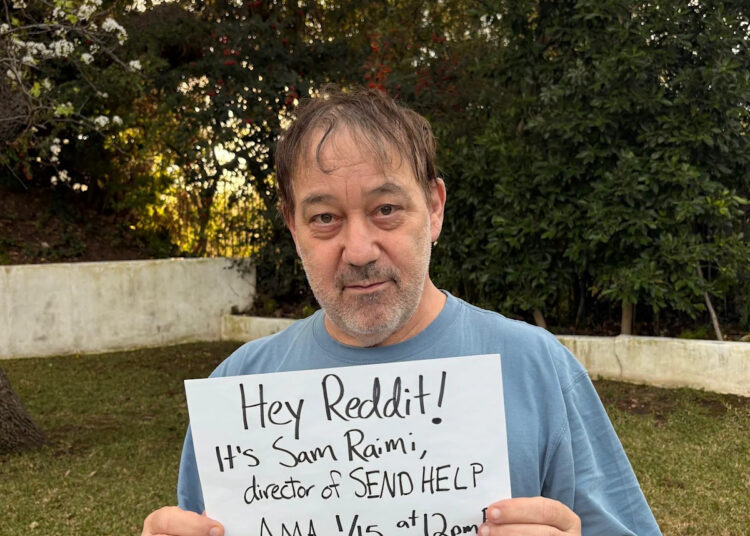 Hey Reddit!
It's Sam Raimi,
director of SEND HELP
AMA 1/15 at 12pm